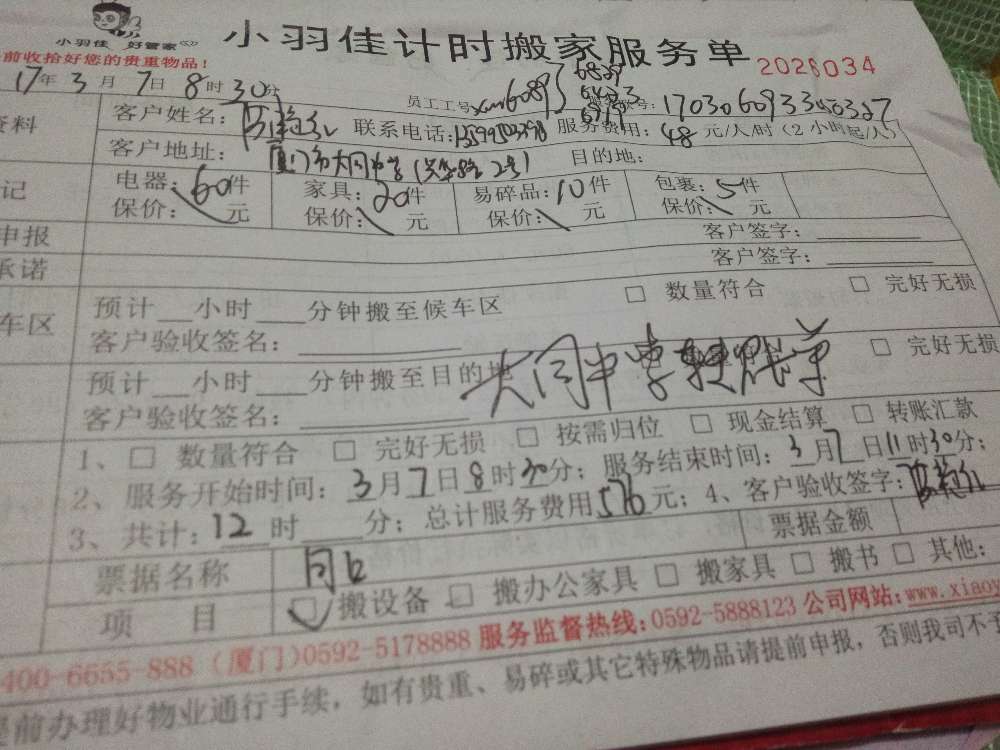 小羽佳 好管家
小羽佳计时搬家服务单
前收拾好您的贵重物品！
2026034
17年3月7日8时30分
员工工号
6089
资料
客户姓名：
联系电话：
服务费用：48元/人/时（2小时起/人）
客户地址：厦门市大同中学
2号）
目的地：
记
电器：60件
家具：20件
易碎品：10件
包裹：5件
保价：＼元
保价：＼元
保价：＼元
保价：＼元
申报
客户签字：
承诺
客户签字：
车区
预计__小时___分钟搬至候车区
□ 数量符合
□ 完好无损
客户验收签名：
预计__小时___分钟搬至目的地
大同中学转账单
□ 完好无损
客户验收签名：
1、□ 数量符合 □ 完好无损 □ 按需归位 □ 现金结算 □ 转账汇款
2、服务开始时间：3月7日8时30分；服务结束时间：3月7日11时30分；
3、共计：12时___分；总计服务费用576元；4、客户验收签字：
票据名称
票据金额
项 目
□搬设备 □搬办公家具 □搬家具 □搬书 □其他：
400-6655-888（厦门)0592-5178888 服务监督热线:0592-5888123 公司网站:www.xiaoy
提前办理好物业通行手续，如有贵重、易碎或其它特殊物品请提前申报，否则我司不予